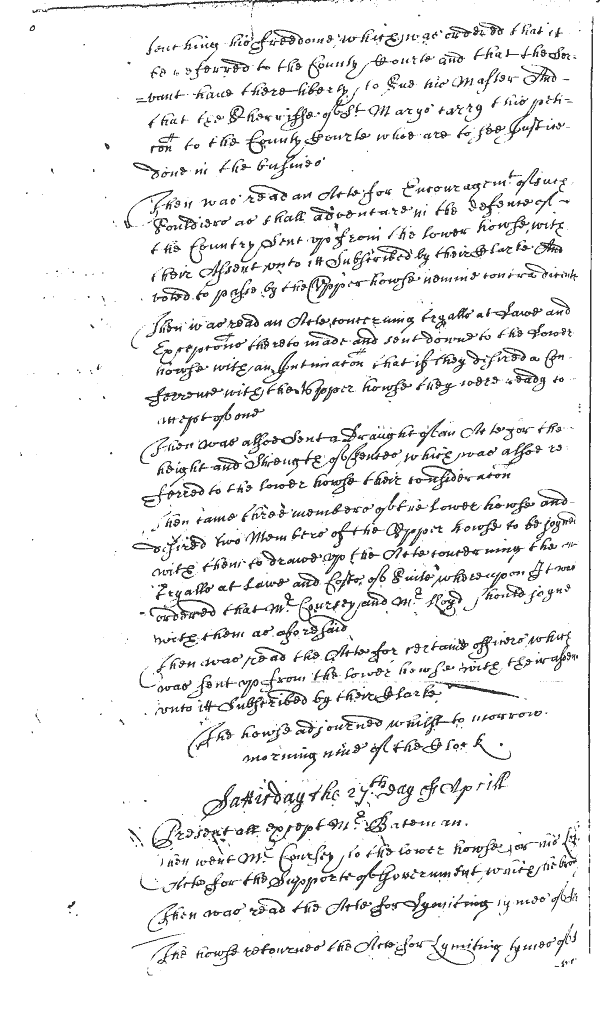 touching his freedome, which was ordered that it
be referred to the County Courte and that the Ser-
=vant have there liberty, to Sue his Master And
that the Sherriffe of St Maryes carry this peti-
con to the County Courte who are to see Justice
done in the busines
Then was read an Acte for Encouragemt of such
Souldiers as shall adventure in the defence of
the Country, Sent up from the lower howse, with
their Assent unto it Subscribed by their Clarke And
voted to passe by the Upper howse nemine contradicente
Then was read an Acte concerning tryalls at Lawe and
Exceptons thereto made and sent downe to the Lower
howse with an Intimaton that if they desired a Con-
ference with the Upper howse they were ready to
accept of one
Then was alsoe Sent a Draught of an Acte for the
height and Strength of Fences, which was alsoe re
ferred to the lower howse their consideraton
Then came three members of the Lower howse and
desired two Members of the Upper howse to be joyned
with them to drawe up the Acte concerning the
tryalls at Lawe and Costs of Suite whereupon It was
ordered that Mr Coursey and Mr Lloyd should joyne
with them as aforesaid
Then was read the Acte for certaine officers which
was sent up from the lower howse with their assent
unto it Subscribed by their Clarke
The howse adjourned untill to morrow
morning nine of the Clock.
Satturday the 27th day of Aprill
Present all except Mr Bateman.
Then went Mr Coursey to the lower howse for
Acte for the Supporte of Government, which he
Then was read the Acte for Lymiting tymes of
The howse retournes the Acte for Lymiting tymes of